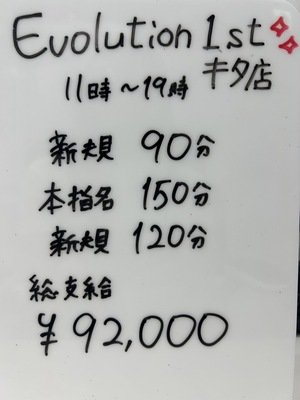 Evolution 1st
キタ店
11時～19時
新規 90分
本指名 150分
新規 120分
総支給
¥92,000